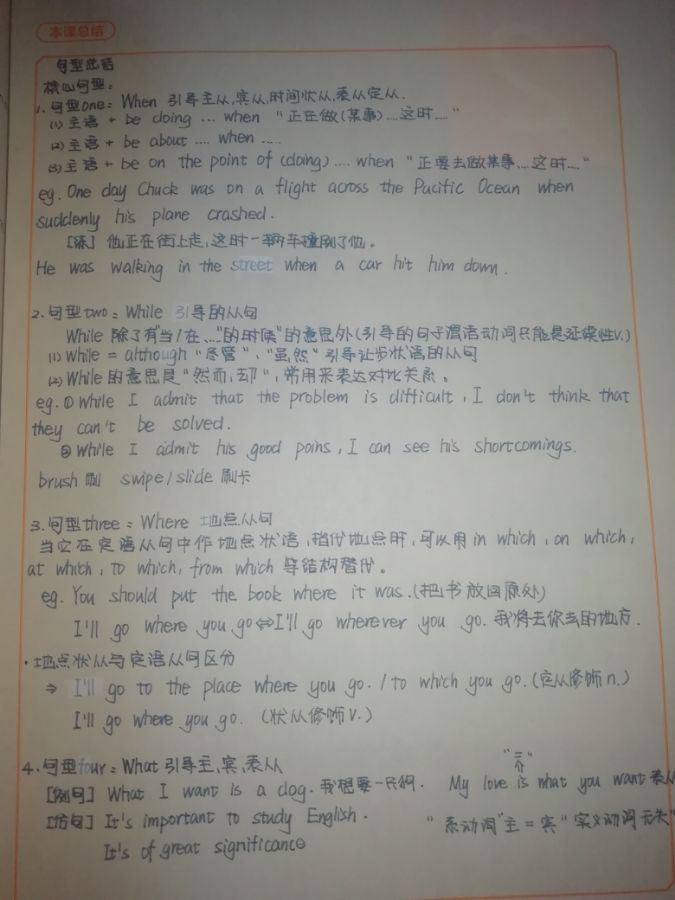 本课总结
句型总结
核心句型：
1. 句型one: When 引导主从,宾从,时间状从,表从定从.
(1) 主语 + be doing ... when "正在做(某事)....这时....."
(2) 主语 + be about .... when .....
(3) 主语 + be on the point of (doing) .... when "正要去做某事....这时...."
eg. One day Chuck was on a flight across the Pacific Ocean when
suddenly his plane crashed.
[练] 他正在街上走,这时一辆车撞到了他。
He was walking in the street when a car hit him down.
2. 句型two: While 引导的从句
While 除了有"当/在....."的时候"的意思外(引导的句子谓语动词只能是延续性v.)
(1) While = although "尽管"、"虽然" 引导让步状语的从句
(2) While 的意思是 "然而,却", 常用来表达对比关系。
eg. ① While I admit that the problem is difficult, I don't think that
they can't be solved.
② While I admit his good poins, I can see his shortcomings.
brush 刷 swipe/slide 刷卡
3. 句型three: Where 地点从句
当它在定语从句中作地点状语,指代地点时,可以用 in which, on which,
at which, to which, from which 等结构替代。
eg. You should put the book where it was. (把书放回原处)
I'll go where you go ⇔ I'll go wherever you go. 我将去你去的地方.
· 地点状从与定语从句区分
⇒ I'll go to the place where you go. / to which you go. (定从修饰n.)
I'll go where you go. (状从修饰v.)
4. 句型four: What 引导主,宾,表从 "三介"
[例句] What I want is a dog. 我想要一只狗. My love is what you want 表从
[仿句] It's important to study English. "系动词"主=宾" 实义动词无
It's of great significance